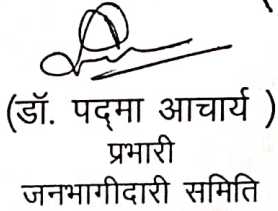 (डॉ. पद्‌मा आचार्य )
प्रभारी
जनभागीदारी समिति